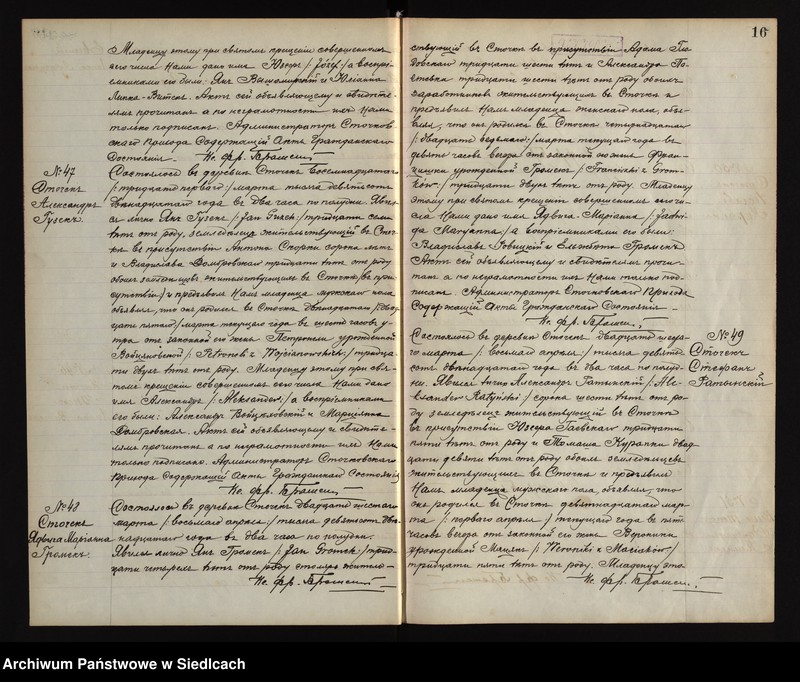 Младенцу этому при святомъ крещеніи совершенномъ
его числа Нами дано имя Юзефъ /: Józef :/ а воспрі-
емниками его были: Янъ Высоцкій и Юліанна
Актъ сей объявляющему и свидѣте-
лямъ прочитанъ а по неграмотности ихъ Нами
только подписанъ. Администраторъ Сточков-
скаго прихода Содержащій Акты Гражданскаго
Состоянія. — Кс. Фр.
№ 47
Сточекъ
Александръ
Гусекъ.
Состоялось въ деревнѣ Сточекъ Восемнадцатаго
/: тридцать перваго :/ марта тысяча девятьсотъ
двѣнадцатаго года въ два часа по полудни. Явил-
ся лично Янъ Гусекъ /: Jan Gusek :/ тридцати семи
лѣтъ отъ роду, земледѣлецъ жительствующій въ Сточ-
кѣ въ присутствіи Антона Скорки сорока лѣтъ
и Владислава Домбровскаго тридцати лѣтъ отъ роду
обоихъ жительствующихъ въ Сточкѣ /: въ при-
сутствіи :/ и предъявилъ Намъ младенца мужскаго пола
объявляя, что онъ родился въ Сточкѣ двѣнадцатаго /: двад-
цать пятаго :/ марта текущаго года въ шесть часовъ у-
тра отъ законной его жены Петронели урожденной
Войцяновской /: Petroneli z Wojcianowskich :/ тридца-
ти двухъ лѣтъ отъ роду. Младенцу этому при свя-
томъ крещеніи совершенномъ сего числа Нами дано
имя Александръ /: Aleksander :/ а воспріемниками
его были: Александръ и Марціянна
Домбровская. Актъ сей объявляющему и свидѣте-
лямъ прочитанъ а по неграмотности ихъ Нами
только подписанъ. Администраторъ Сточковскаго
прихода Содержащій Акты Гражданскаго Состоянія
Кс. Фр.
№ 48
Сточекъ
Ядвига Маріанна
Громекъ.
Состоялось въ деревнѣ Сточекъ двадцать шестаго
марта /: восьмаго апрѣля :/ тысяча девятьсотъ двѣ-
надцатаго года въ два часа по полудни.
Явился лично Янъ Громекъ /: Jan Gromek :/ трид-
цати четырехъ лѣтъ отъ роду столяръ житель-
Кс. Фр.
16
ствующій въ Сточкѣ въ присутствіи Адама
тридцати шести лѣтъ и Александра
тридцати шести лѣтъ отъ роду обоихъ
заработниковъ жительствующихъ въ Сточкѣ и
предъявилъ Намъ младенца женскаго пола, объя-
вляя, что онъ родился въ Сточкѣ четырнадцатаго
/: двадцать седьмаго :/ марта текущаго года въ
девять часовъ вечера отъ законной его жены Фран-
цишки урожденной Громекъ /: Franciszki z Grom-
ków :/ тридцати двухъ лѣтъ отъ роду. Младенцу
этому при святомъ крещеніи совершенномъ сего чи-
сла Нами дано имя Ядвига-Маріанна /: Jadwi-
ga Maryanna :/ а воспріемниками его были:
Владиславъ и Эльжбета Громекъ
Актъ сей объявляющему и свидѣтелямъ прочи-
танъ а по неграмотности ихъ Нами только под-
писанъ. Администраторъ Сточковскаго Прихода
Содержащій Акты Гражданскаго Состоянія —
Кс. Фр.
№ 49
Сточекъ
Стефанъ
Ратынскій
Состоялось въ деревнѣ Сточекъ двадцать шеста-
го марта /: восьмаго апрѣля :/ тысяча девять-
сотъ двѣнадцатаго года въ два часа по полуд-
ни. Явился лично Александръ Ратынскій /: Ale-
ksander Ratyński :/ сорока шести лѣтъ отъ ро-
ду земледѣлецъ жительствующій въ Сточкѣ
въ присутствіи Юзефа тридцати
пяти лѣтъ отъ роду и Томаша двад-
цати девяти лѣтъ отъ роду обоихъ земледѣльцевъ
жительствующихъ въ Сточкѣ и предъявилъ
Намъ младенца мужскаго пола, объявляя, что
онъ родился въ Сточкѣ девятнадцатаго мар-
та /: перваго апрѣля :/ текущаго года въ пять
часовъ вечера отъ законной его жены Вероники
урожденной /: Weroniki z :/
тридцати пяти лѣтъ отъ роду. Младенцу это-
Кс. Фр.
Archiwum Państwowe w Siedlcach